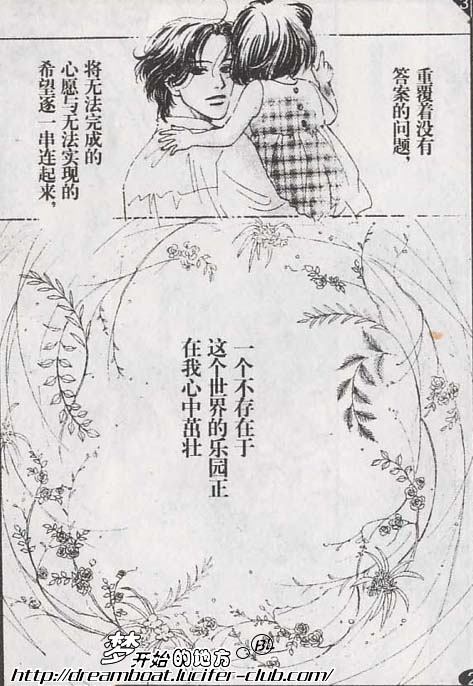 重覆着没有
答案的问题,
将无法完成的
心愿与无法实现的
希望逐一串连起来,
一个不存在于
这个世界的乐园正
在我心中茁壮
梦开始的地方·BL
http://dreamboat.lucifer-club.com/